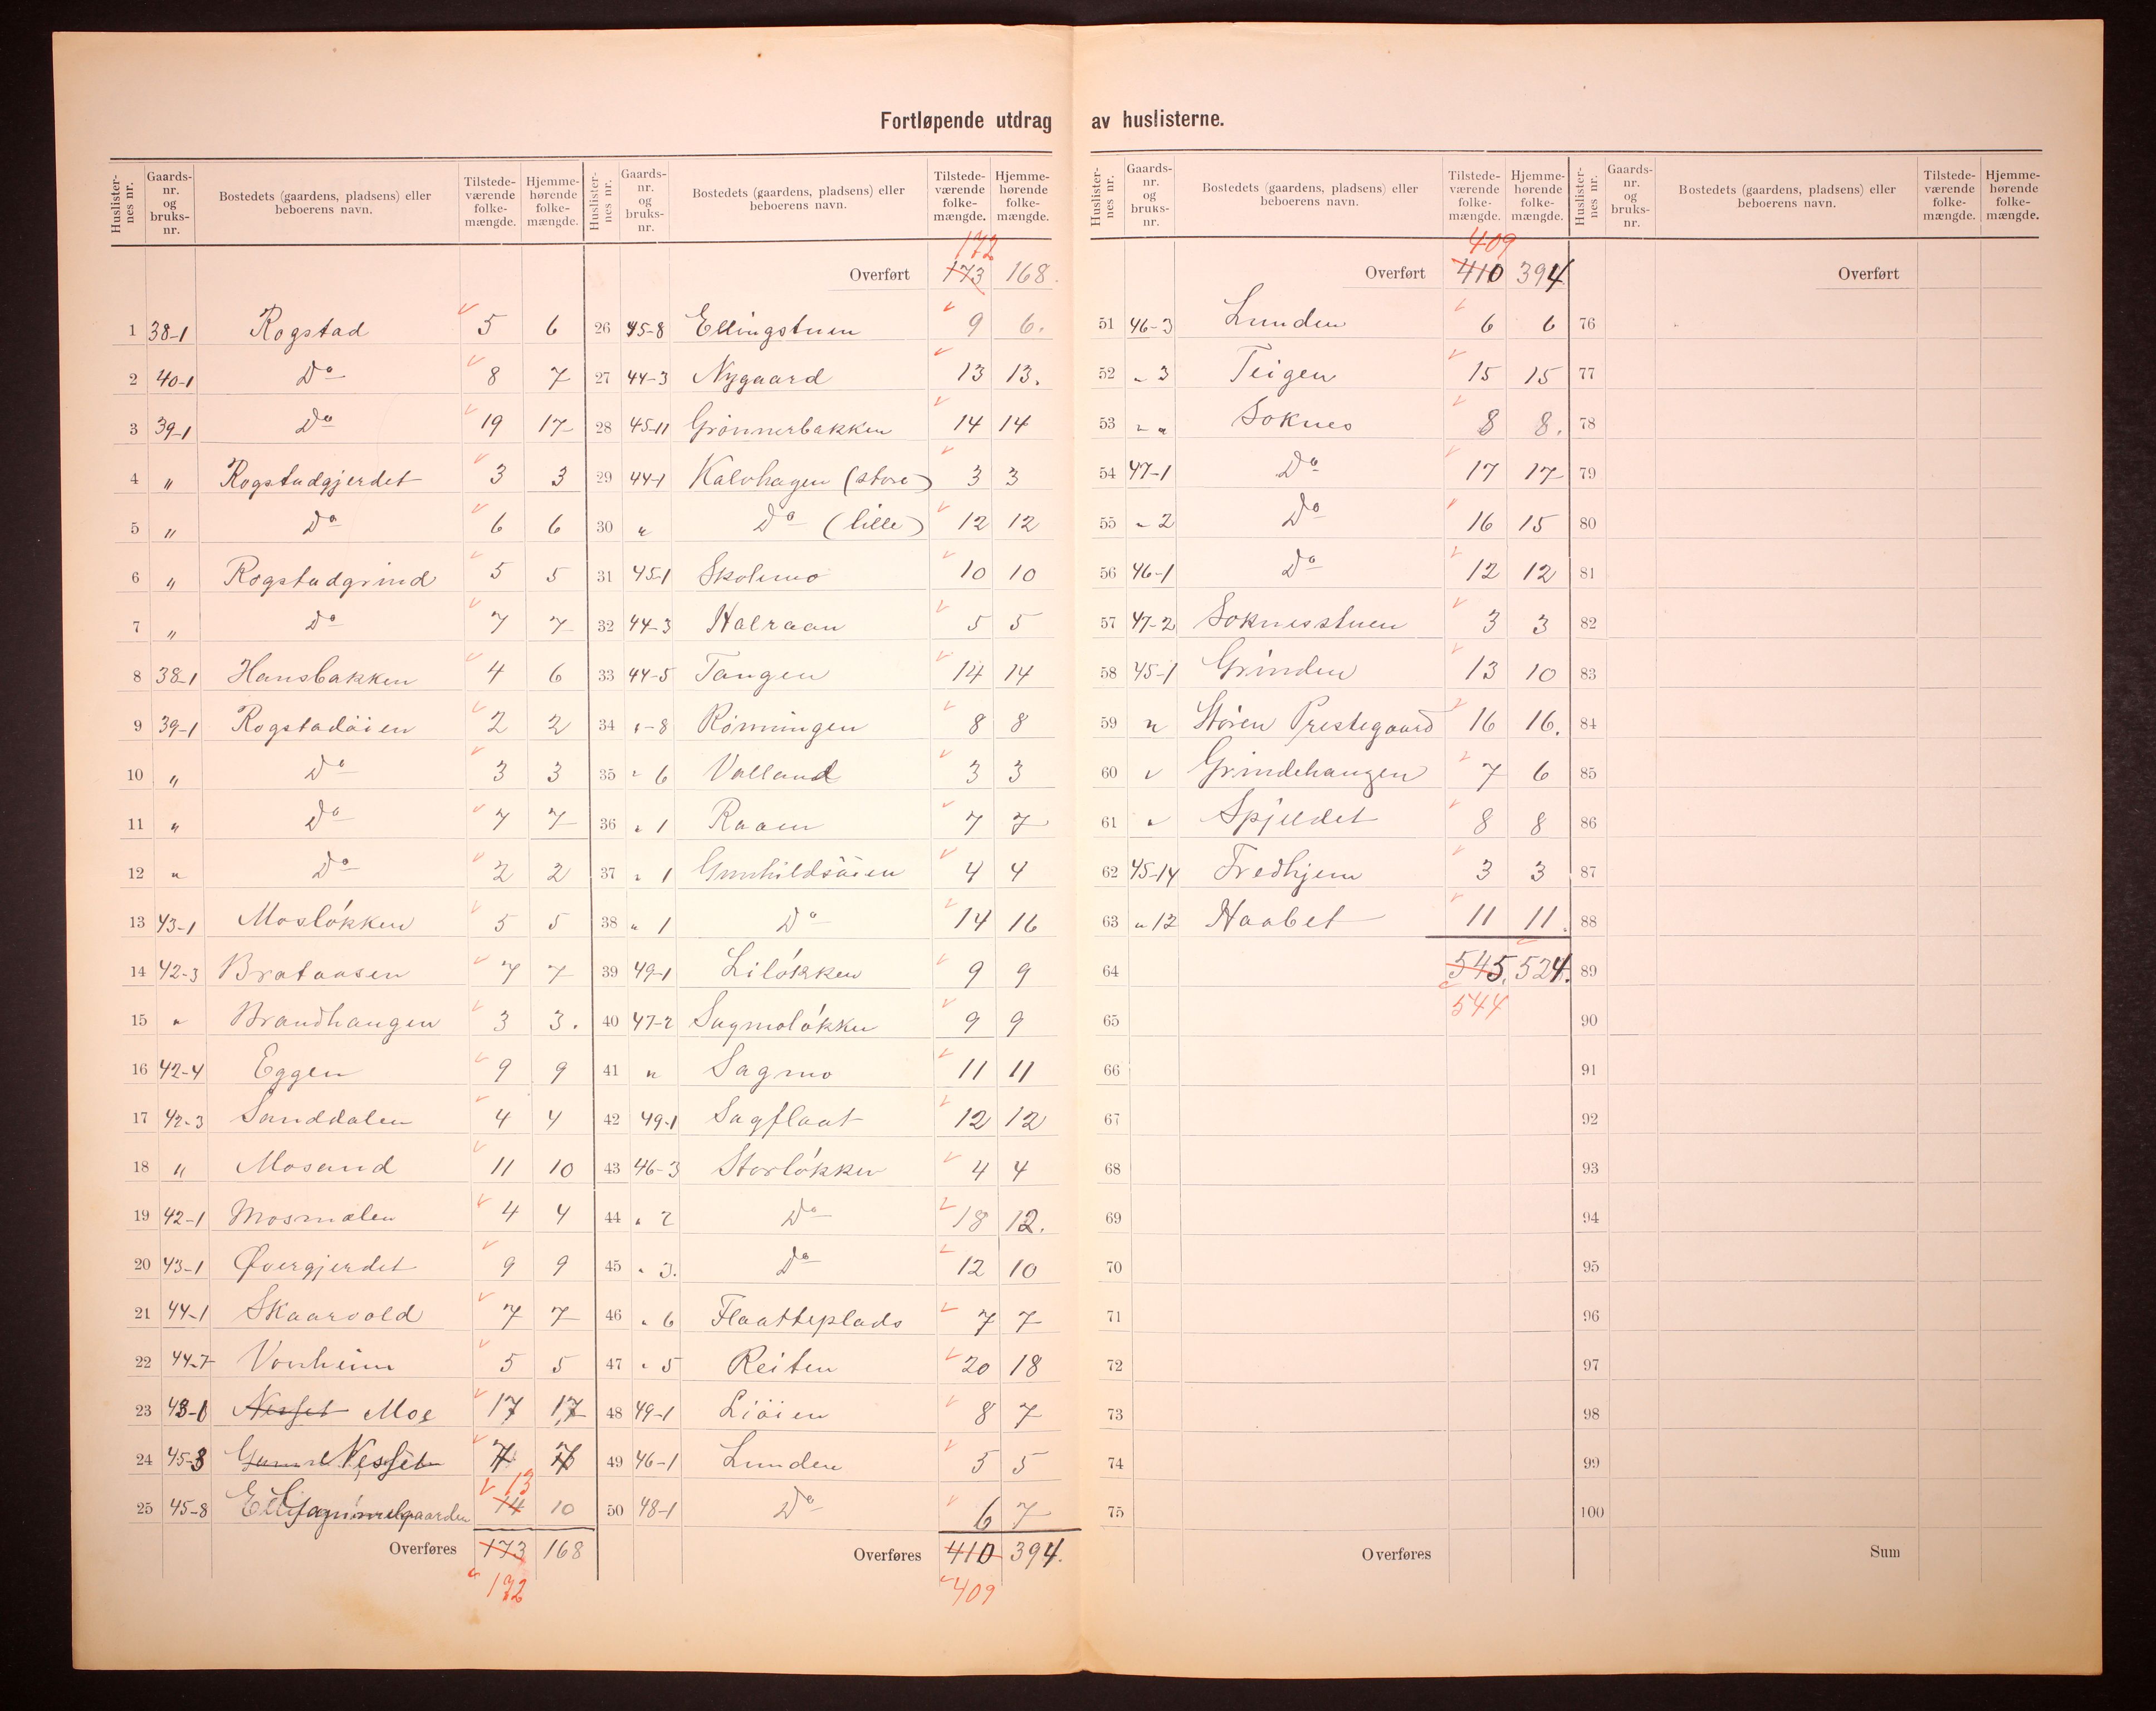 Fortløpende utdrag av huslisterne.
Huslister-nes nr. Gaards-nr. og bruks-nr. Bostedets (gaardens, pladsens) eller beboerens navn. Tilstede-værende folke-mængde. Hjemme-hørende folke-mængde.
1 38-1 Rogstad 5 6
2 40-1 Do 8 7
3 39-1 Do 19 17
4 " Rogstadgjerdet 3 3
5 " Do 6 6
6 " Rogstadgrind 5 5
7 " Do 7 7
8 38-1 Hansbakken 4 6
9 39-1 Rogstadöien 2 2
10 " Do 3 3
11 " Do 7 7
12 " Do 2 2
13 43-1 Mosløkken 5 5
14 42-3 Brataasen 7 7
15 " Brandhaugen 3 3.
16 42-4 Eggen 9 9
17 42-3 Sanddalen 4 4
18 " Mosand 11 10
19 42-1 Mosmælen 4 4
20 43-1 Øvergjerdet 9 9
21 44-1 Skaarvold 7 7
22 44-7 Vonheim 5 5
23 43-1 Nesset Moe 17 17
24 45-3 Nesset 7 7
25 45-8 14 13 10
Overføres 173 168
172
Huslister-nes nr. Gaards-nr. og bruks-nr. Bostedets (gaardens, pladsens) eller beboerens navn. Tilstede-værende folke-mængde. Hjemme-hørende folke-mængde.
172
Overført 173 168.
26 45-8 Ellingstuen 9 6.
27 44-3 Nygaard 13 13.
28 45-11 Grønnerbakken 14 14
29 44-1 Kalvhagen (store) 3 3
30 " Do (lille) 12 12
31 45-1 Skolmo 10 10
32 44-3 Halraan 5 5
33 44-5 Tangen 14 14
34 "-8 Rønningen 8 8
35 " 6 Valland 3 3
36 " 1 Raaen 7 7
37 " 1 Gunhildsöien 4 4
38 " 1 Do 14 16
39 49-1 Liløkken 9 9
40 47-2 Sagmoløkken 9 9
41 " Sagmo 11 11
42 49-1 Sagflaat 12 12
43 46-3 Storløkken 4 4
44 " 2 Do 18 12.
45 " 3. Do 12 10
46 " 6 Flaatteplads 7 7
47 " 5 Reiten 20 18
48 49-1 Liöien 8 7
49 46-1 Lunden 5 5
50 48-1 Do 6 7
Overføres 410 394.
409
Huslister-nes nr. Gaards-nr. og bruks-nr. Bostedets (gaardens, pladsens) eller beboerens navn. Tilstede-værende folke-mængde. Hjemme-hørende folke-mængde.
409
Overført 410 394
51 46-3 Lunden 6 6
52 " 3 Teigen 15 15
53 " " Soknes 8 8.
54 47-1 Do 17 17
55 " 2 Do 16 15
56 46-1 Do 12 12
57 47-2 Soknesstuen 3 3
58 45-1 Grinden 13 10
59 " Støren Prestegaard 16 16.
60 " Grindehaugen 7 6
61 " Spjeldet 8 8
62 45-14 Fredhjem 3 3
63 " 12 Haabet 11 11.
64 545. 524.
544
65
66
67
68
69
70
71
72
73
74
75
Overføres
Huslister-nes nr. Gaards-nr. og bruks-nr. Bostedets (gaardens, pladsens) eller beboerens navn. Tilstede-værende folke-mængde. Hjemme-hørende folke-mængde.
Overført
76
77
78
79
80
81
82
83
84
85
86
87
88
89
90
91
92
93
94
95
96
97
98
99
100
Sum